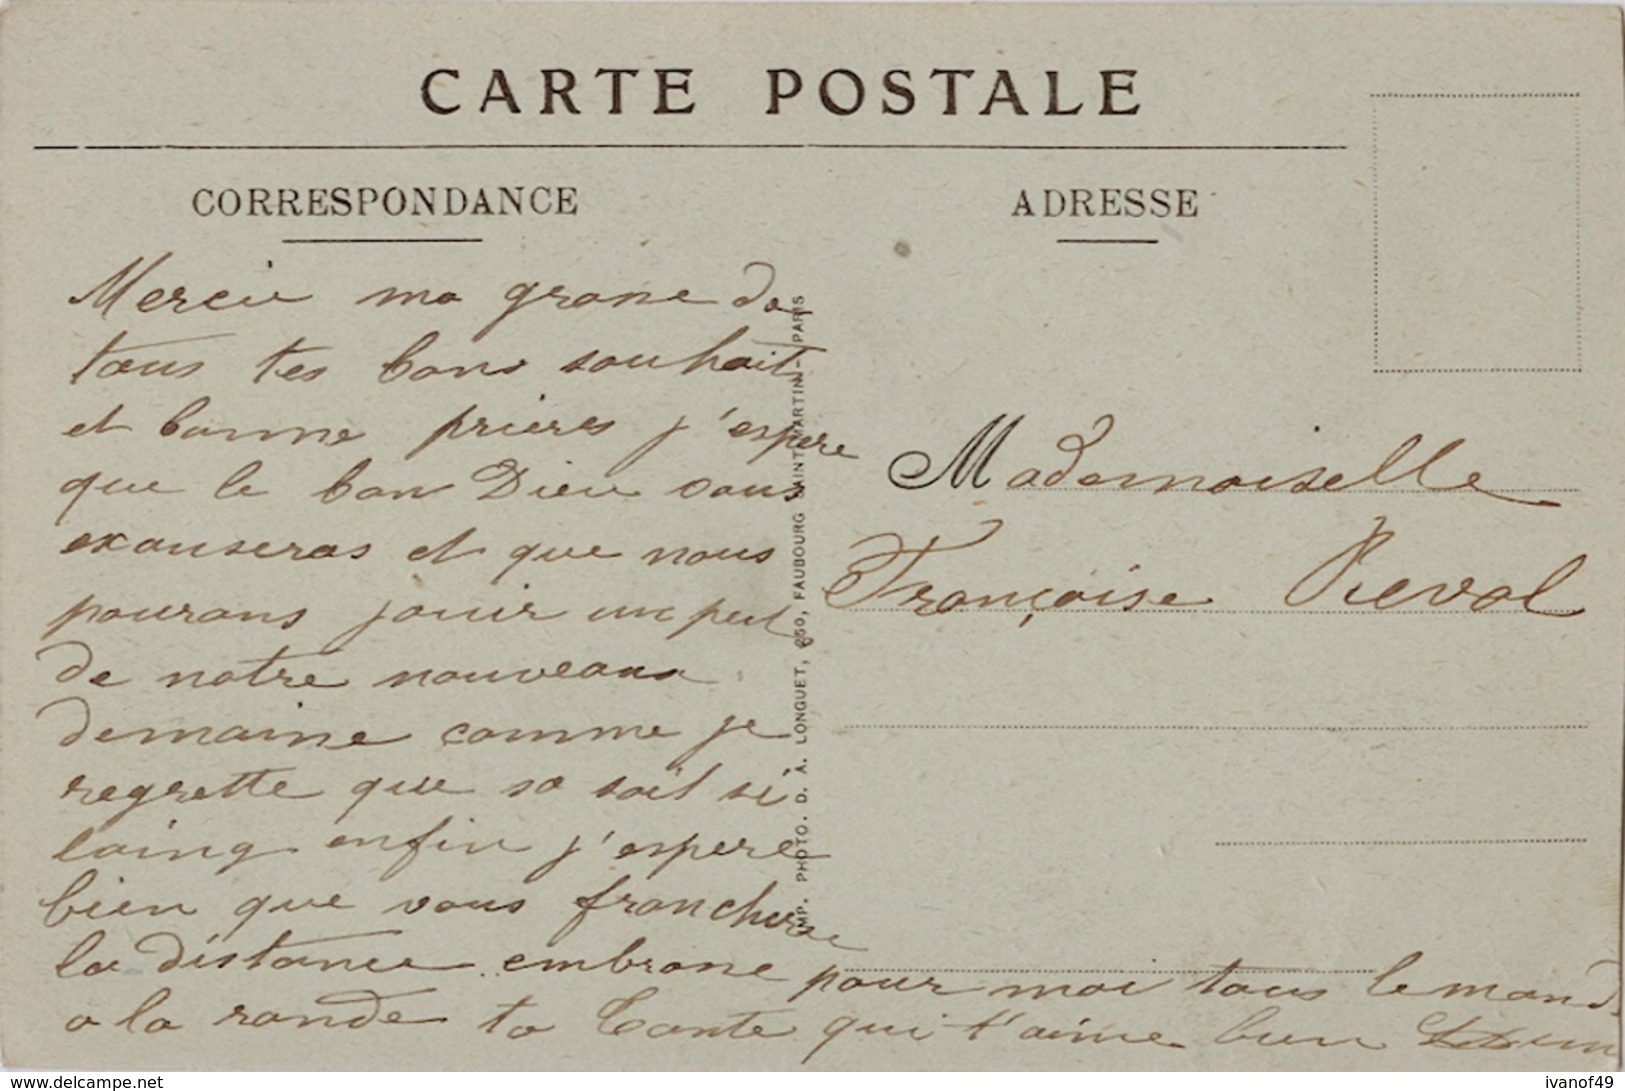 CARTE POSTALE
CORRESPONDANCE
ADRESSE
Mercie ma grane de
tous tes bons souhaits
et bonne prieres j'espere
que le bon Dieu vous
exauseras et que nous
pourons jouir un peut
de notre nouveaux
demaine comme je
regrette que sa soit si
loing enfin j'espere
bien que vous franchire
la distance embrane pour moi tous le monde
a la ronde ta Tante qui t'aime bien
IMP. PHOTO. D. A. LONGUET, 250, FAUBOURG SAINT-MARTIN - PARIS
Mademoiselle
Françoise Revol
www.delcampe.net
ivanof49